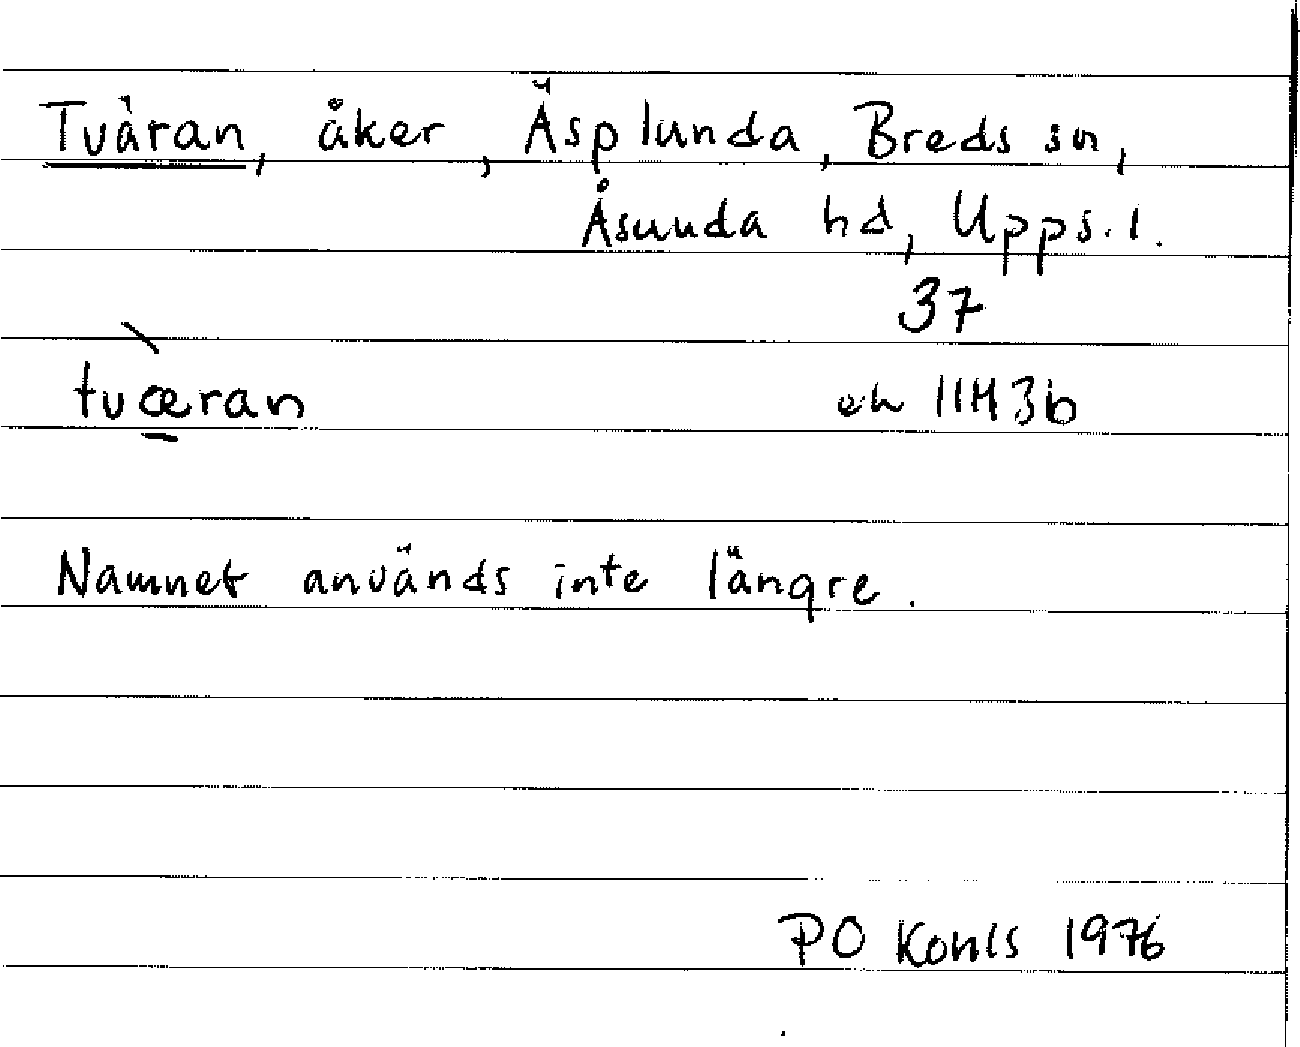 Tväran, åker, Äsplunda, Breds sn,
Åsunda hd, Upps. l.
37
tvæ̀ran ek 11H 3b
Namnet används inte längre.
PO Kohls 1976